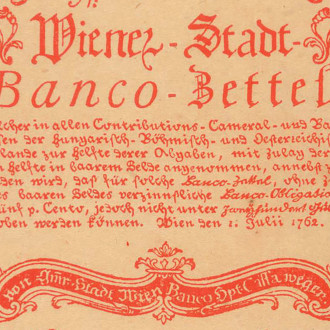 Wiener-Stadt-
Banco-Zettel
lcher in allen Contributions- Cameral- und Ba
sen der Hungarisch- Böhmisch- und Oesterreichis
lande zur Helfte derer Abgaben, mit zulag der
n Helfte in baarem Gelde angenommen, annebst
den wird, daß für solche Banco-Zettel, ohne
s baaren Geldes verzinnsliche Banco-Obligatio
ünf p. Cento, jedoch nicht unter
oben werden können. Wien den 1. Julii 1762.
von Stadt Wien Banco Cassa wegen